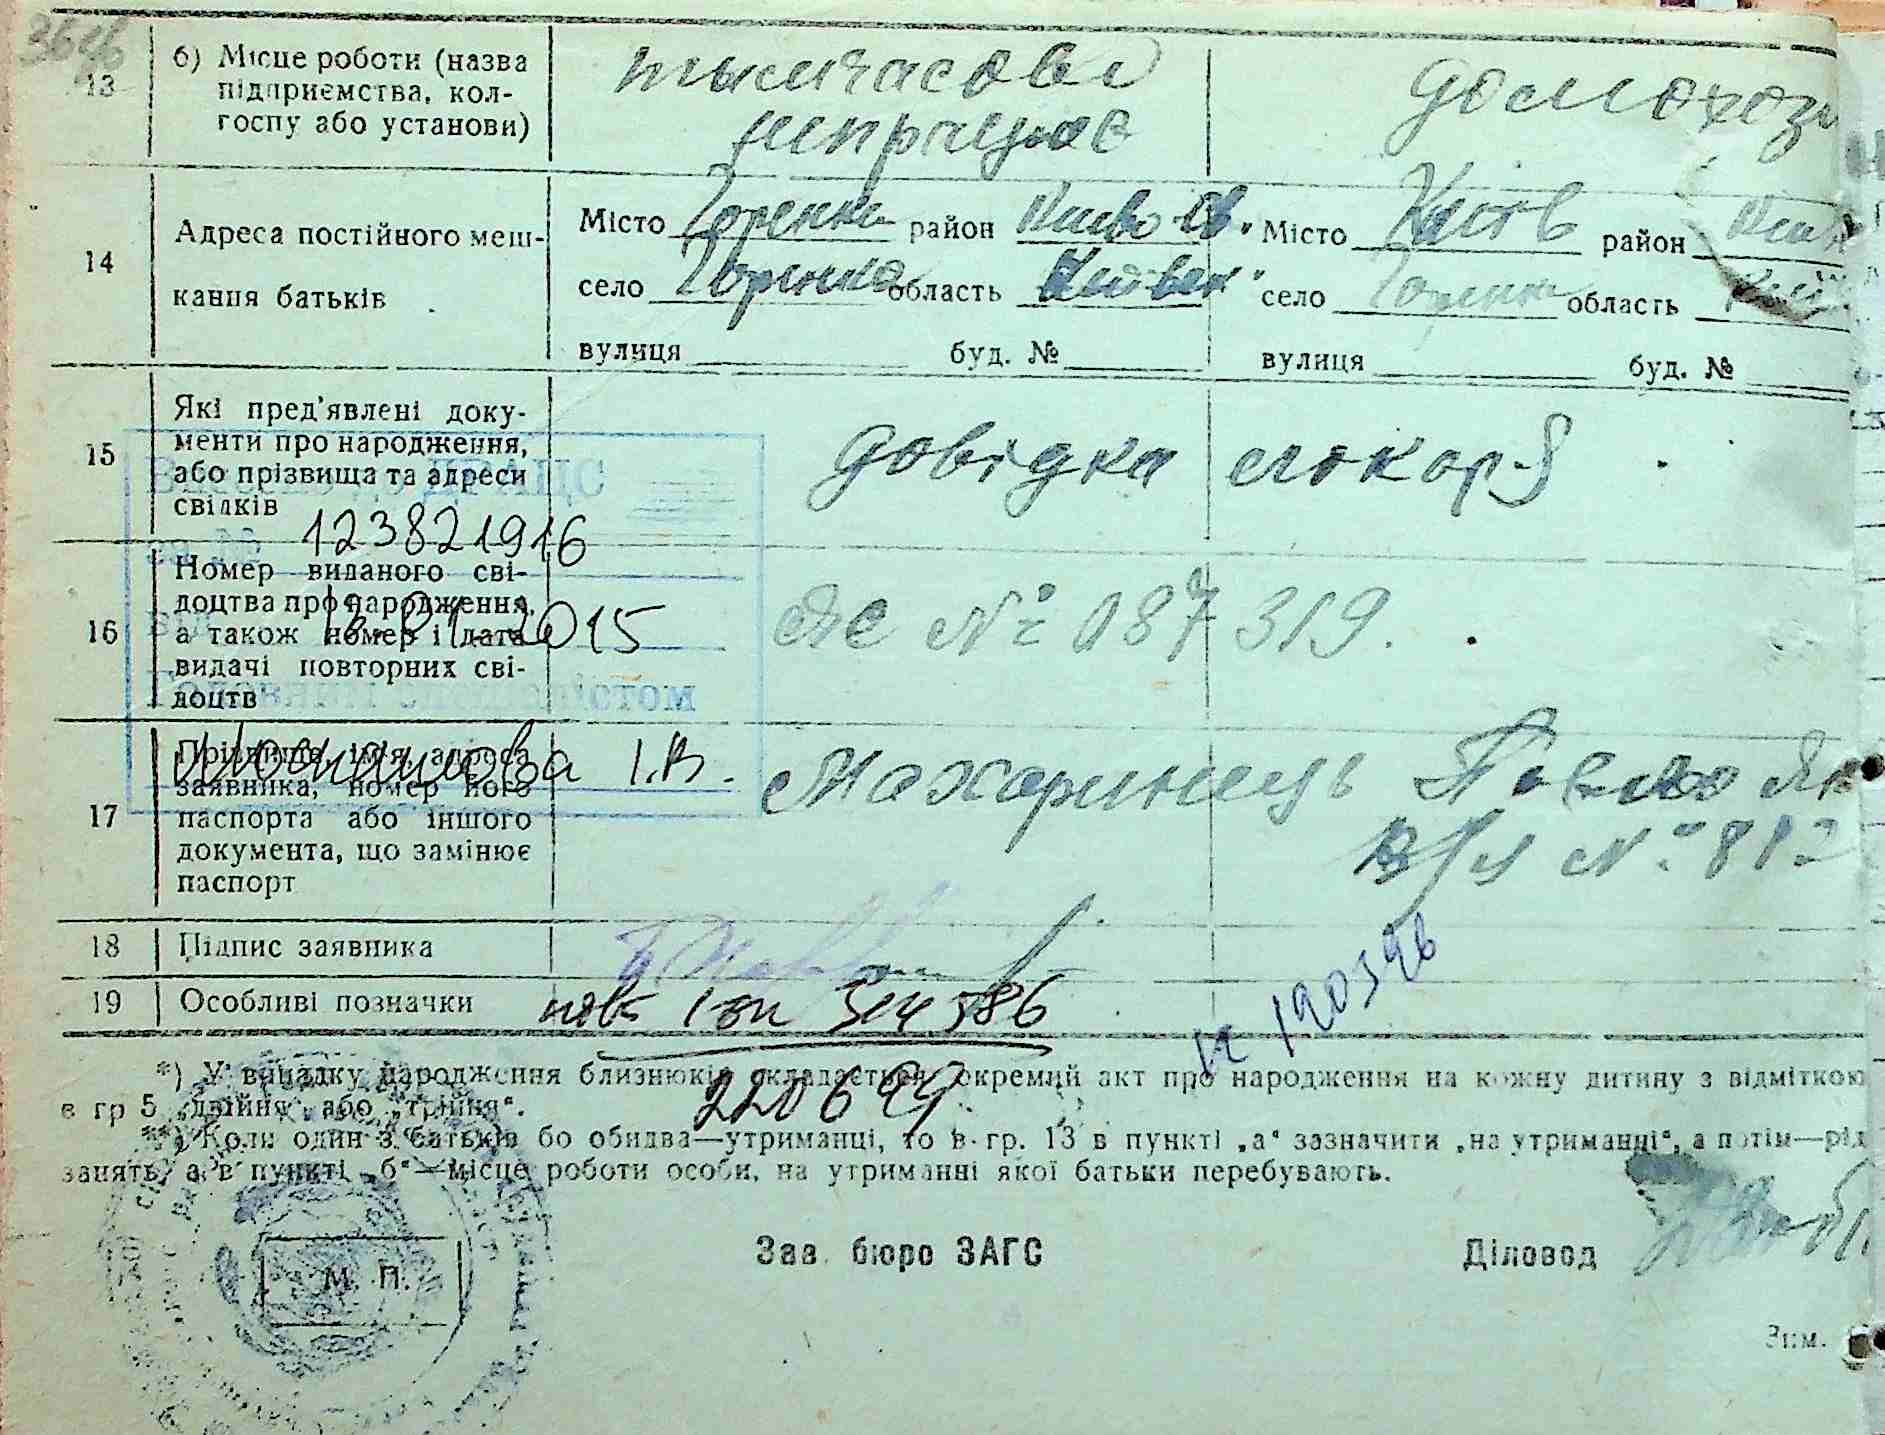 13
б) Місце роботи (назва
підприємства, кол-
госпу або установи)
тимчасово
непрацює
домохоз
14
Адреса постійного меш-
кання батьків
Місто Горенка район Києво-Св.
село Горенка область Київськ
вулиця буд. №
Місто Київ район
село Горенка область
вулиця буд. №
15
Які пред'явлені доку-
менти про народження,
або прізвища та адреси
свідків
довідка лікаря
123821916
16
Номер виданого сві-
доцтва про народження,
а також номер і дата
видачі повторних сві-
доцтв
01.2015
№ 187319.
17
Прізвище, ім'я, адреса
заявника, номер його
паспорта або іншого
документа, що замінює
паспорт
І.В.
Махаринець Павло Як
в/ч №
18 Підпис заявника
19 Особливі позначки
386
120396
220649
*) У випадку народження близнюків складається окремий акт про народження на кожну дитину з відміткою
в гр 5 „двійня" або „трійня".
**) Коли один з батьків бо обидва—утриманці, то в гр. 13 в пункті „а" зазначити „на утриманні", а потім—рід
занять, а в пункті „б"—місце роботи особи, на утриманні якої батьки перебувають.
М. П.
Зав. бюро ЗАГС
Діловод
Зам.